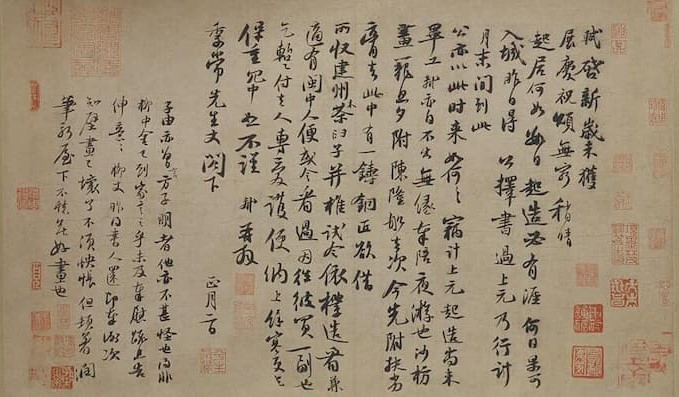 軾啓新歲未獲
展慶祝頌無窮稍晴
起居何如數日起造必有涯何日果可
入城昨日得公擇書過上元乃行計
月末間到此
公亦以此時來如何々竊計上元起造尚未
畢工軾亦自不出無緣奉陪夜遊也沙枋
畫籠旦夕附陳隆舡去次今先附扶劣
膏去此中有一鑄銅匠欲借
所收建州木茶臼子并椎試令依樣造看兼
適有閩中人便或令看過因往彼買一副也
乞暫付去人專愛護便納上餘寒更乞
保重冗中恕不謹軾再拜
季常先生丈閣下
正月二日
子由亦曾言方子明者他亦不甚怪也得非
柳中舍已到家言之乎未及奉慰疏且告
伸意々柳丈昨得書人還即奉謝次
知壁畫已壞了不須怏悵但頓著潤
筆新屋下不愁無好畫也